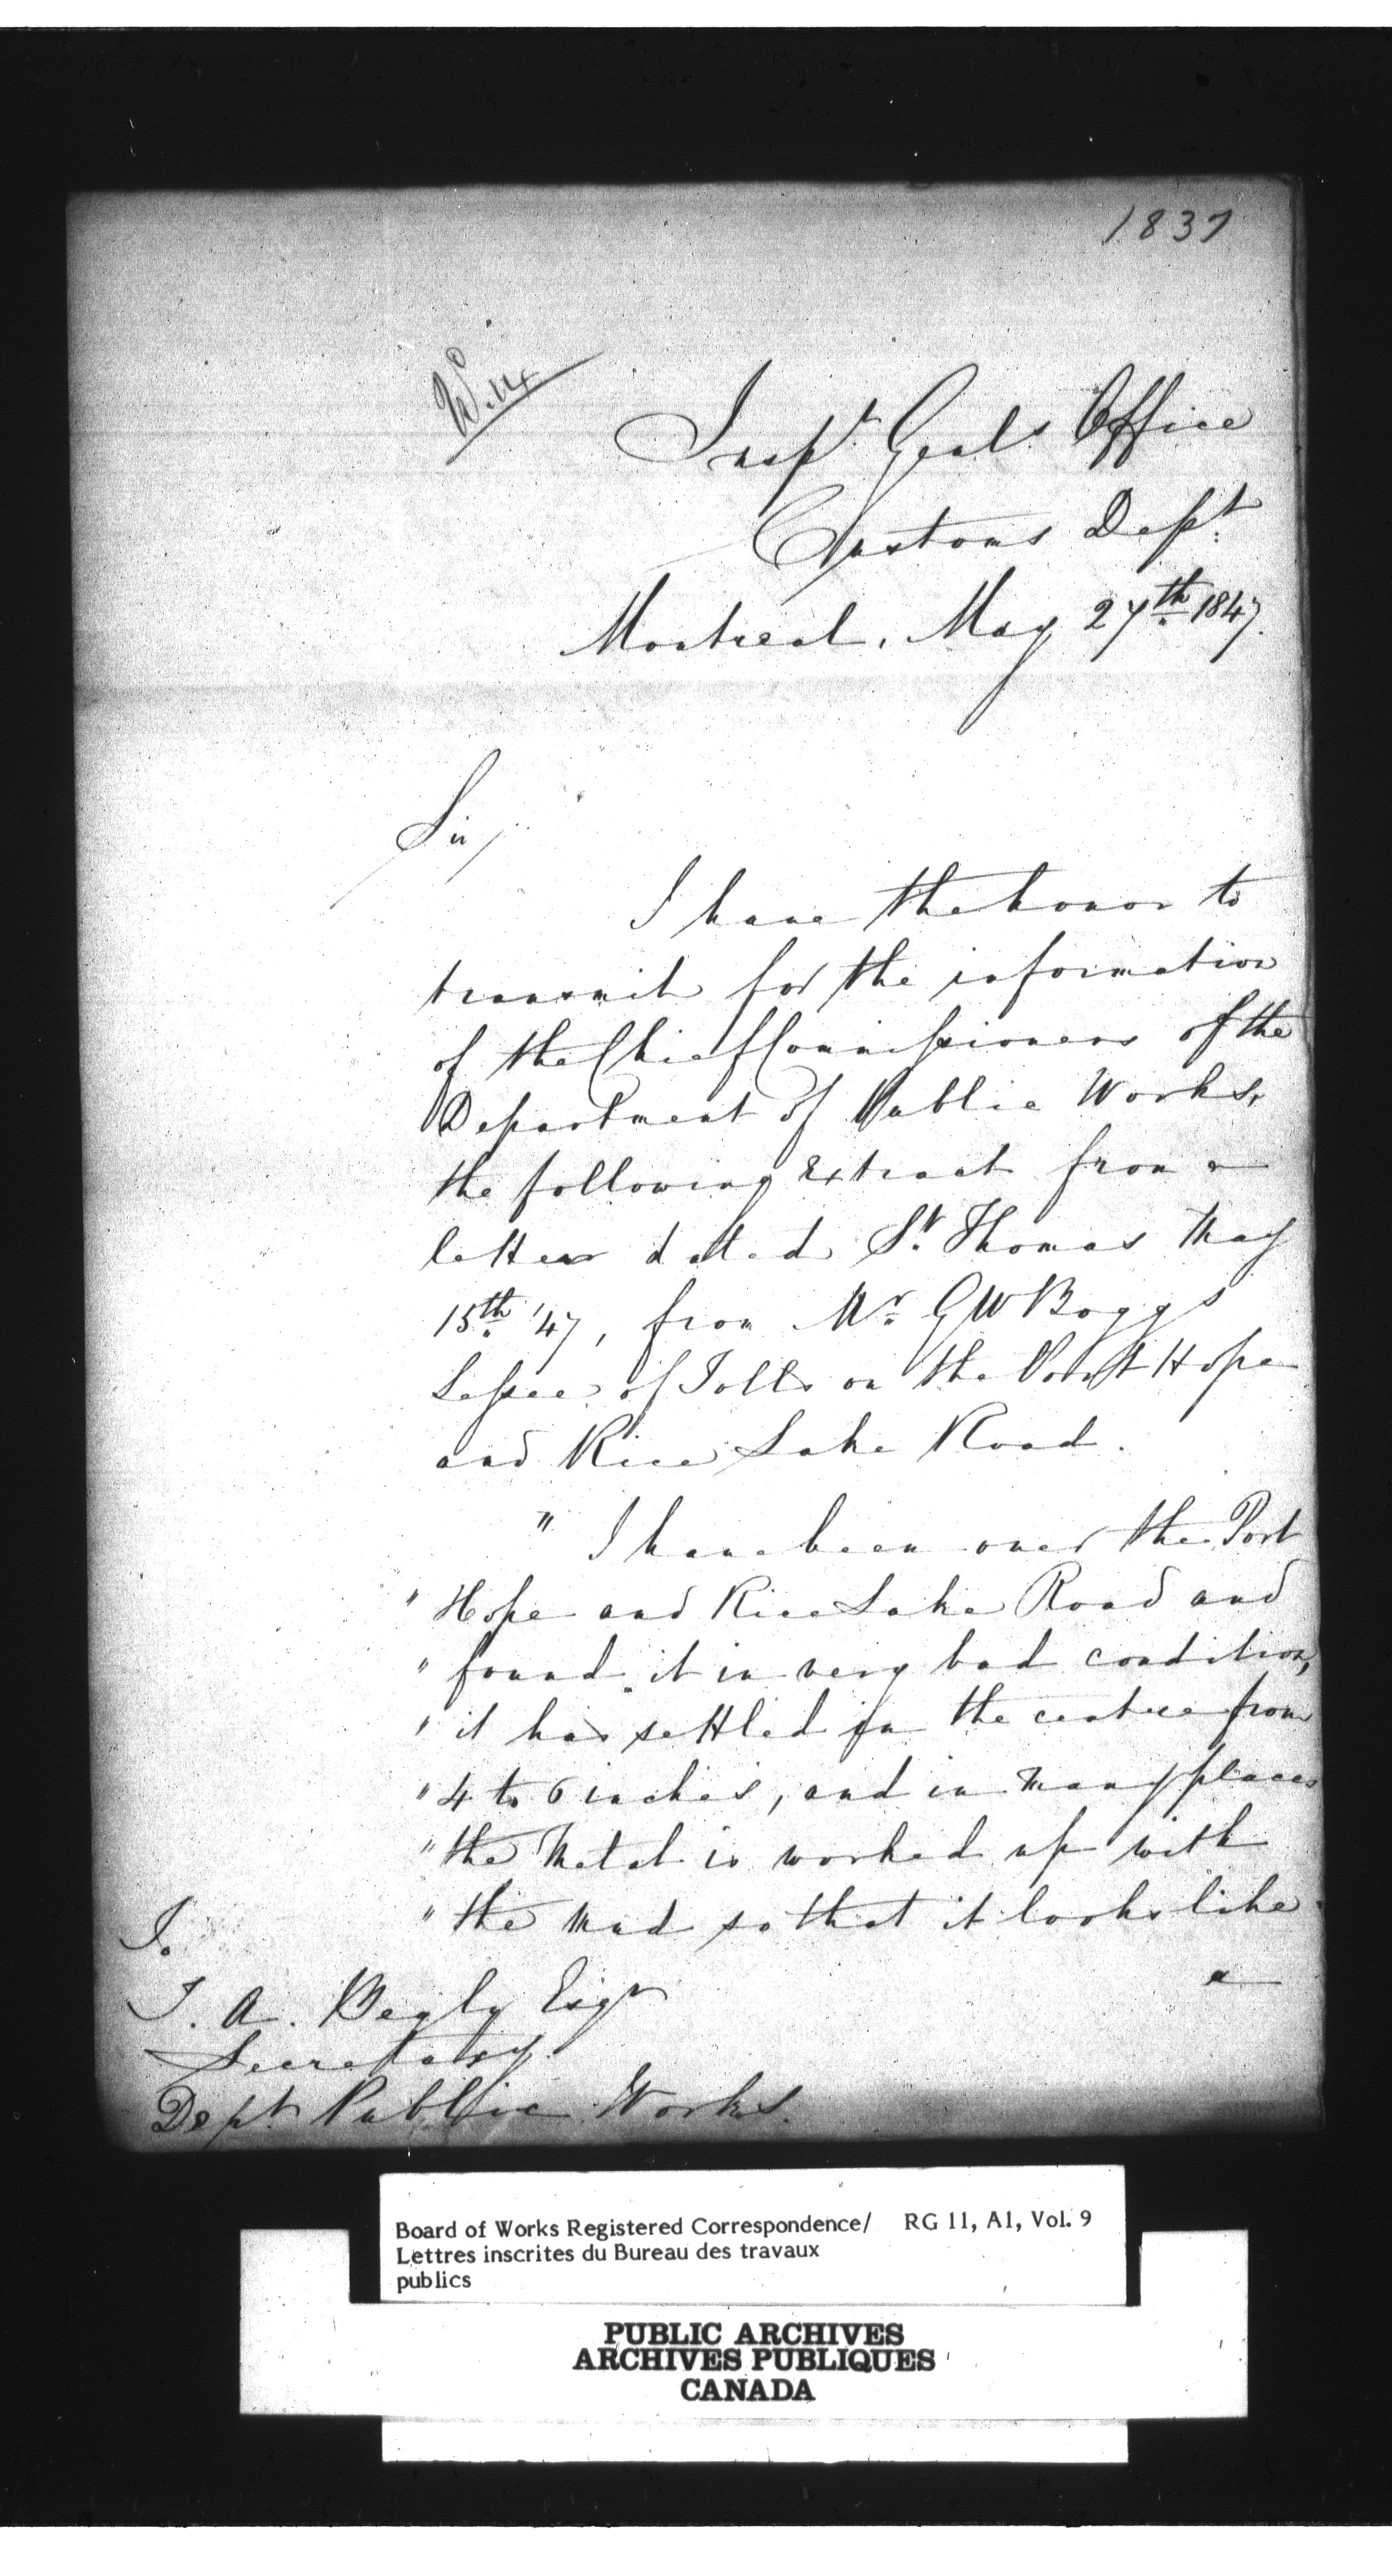 1837
Insp.r Genl.s Office
Customs Dept.
Montreal, May 27th 1847.
Sir,
I have the honor to
transmit for the information
of the Chief Commissioners of the
Department of Public Works,
the following extract from a
letter dated St. Thomas May
15th '47, from Mr G W Boggs
Lessee of Tolls on the Port Hope
and Rice Lake Road.
" I have been over the Port
" Hope and Rice Lake Road and
" found it in very bad condition,
" it has settled in the centre from
" 4 to 6 inches, and in many places
" the Metal is worked up with
" the mud so that it looks like
a
To
T. A. Begly Esqr
Secretary
Dept. Public Works.
Board of Works Registered Correspondence/ RG 11, A1, Vol. 9
Lettres inscrites du Bureau des travaux
publics
PUBLIC ARCHIVES
ARCHIVES PUBLIQUES
CANADA